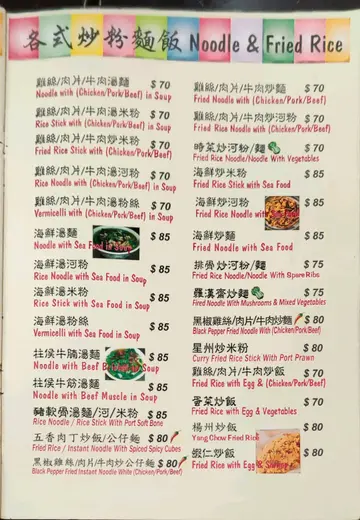 各式炒粉麵飯 Noodle & Fried Rice
雞絲/肉片/牛肉湯麵 $ 70
Noodle with (Chicken/Pork/Beef) in Soup
雞絲/肉片/牛肉湯米粉 $ 70
Rice Stick with (Chicken/Pork/Beef) in Soup
雞絲/肉片/牛肉炒米粉 $ 70
Fried Rice Stick with (Chicken/Pork/Beef)
雞絲/肉片/牛肉湯河粉 $ 70
Rice Noodle with (Chicken/Pork/Beef) in Soup
雞絲/肉片/牛肉湯粉絲 $ 70
Vermicelli with (Chicken/Pork/Beef) in Soup
海鮮湯麵 $ 85
Noodle with Sea Food in Soup
海鮮湯河粉 $ 85
Rice Noodle with Sea Food in Soup
海鮮湯米粉 $ 85
Rice Stick with Sea Food in Soup
海鮮湯粉絲 $ 85
Vermicelli with Sea Food in Soup
柱侯牛腩湯麵 $ 85
Noodle with Beef in Soup
柱侯牛筋湯麵 $ 85
Noodle with Beef Muscle in Soup
豬軟骨湯麵/河/米粉 $ 85
Rice Noodle / Rice Stick With Port Soft Bone
五香肉丁炒飯/公仔麵 $ 80
Fried Rice / Instant Noodle With Spiced Spicy Cubes
黑椒雞絲/肉片/牛肉炒公仔麵 $ 80
Black Pepper Fried Instant Noodle White (Chicken/Pork/Beef)
雞絲/肉片/牛肉炒麵 $ 70
Fried Noodle with (Chicken/Pork/Beef)
雞絲/肉片/牛肉炒河粉 $ 70
Fried Rice Noodle with (Chicken/Pork/Beef)
時菜炒河粉/麵 $ 70
Fried Rice Noodle/Noodle With Vegetables
海鮮炒米粉 $ 85
Fried Rice Stick with Sea Food
海鮮炒河粉 $ 85
Fried Rice Noodle with Sea Food
海鮮炒麵 $ 85
Fried Noodle with Sea Food
排骨炒河粉/麵 $ 75
Fried Rice Noodle/Noodle With Spare Ribs
羅漢齋炒麵 $ 75
Fired Noodle With Mushrooms & Mixed Vegetables
黑椒雞絲/肉片/牛肉炒麵 $ 80
Black Pepper Fried Noodle With (Chicken/Pork/Beef)
星州炒米粉 $ 80
Curry Fried Rice Stick With Port Prawn
雞絲/肉片/牛肉炒飯 $ 70
Fried Rice with Egg & (Chicken/Pork/Beef)
蛋菜炒飯 $ 70
Fried Rice with Egg & Vegetables
楊州炒飯 $ 80
Yang Chow Fried Rice
蝦仁炒飯 $ 80
Fried Rice with Egg & Shrimp